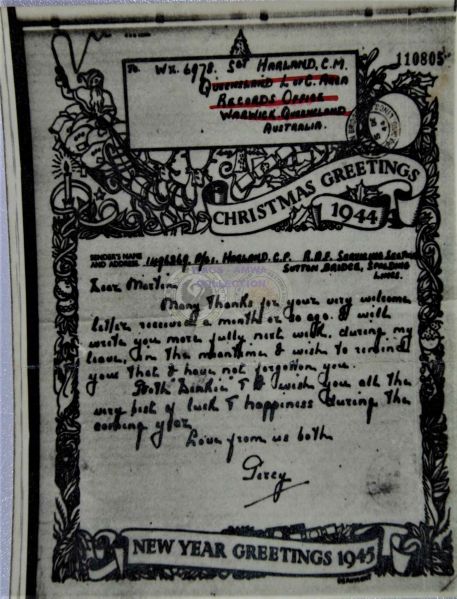 To. WX. 6978. SGT HARLAND, C.M.
QUEENSLAND L OF C AREA
RECORDS OFFICE
WARWICK QUEENSLAND
AUSTRALIA.
110805
CHRISTMAS GREETINGS
1944
SENDER'S NAME
AND ADDRESS
HARLAND, C.P. R.A.F.
SUTTON BRIDGE, SPALDING
LINCS.
Dear
Many thanks for your very welcome
letter received a month or so ago. I will
write you more fully next week, during my
leave, in the meantime I wish to remind
you that I have not forgotten you.
Both & I wish you all the
very best of luck & happiness during the
coming year
Love from us both
Percy
NEW YEAR GREETINGS 1945